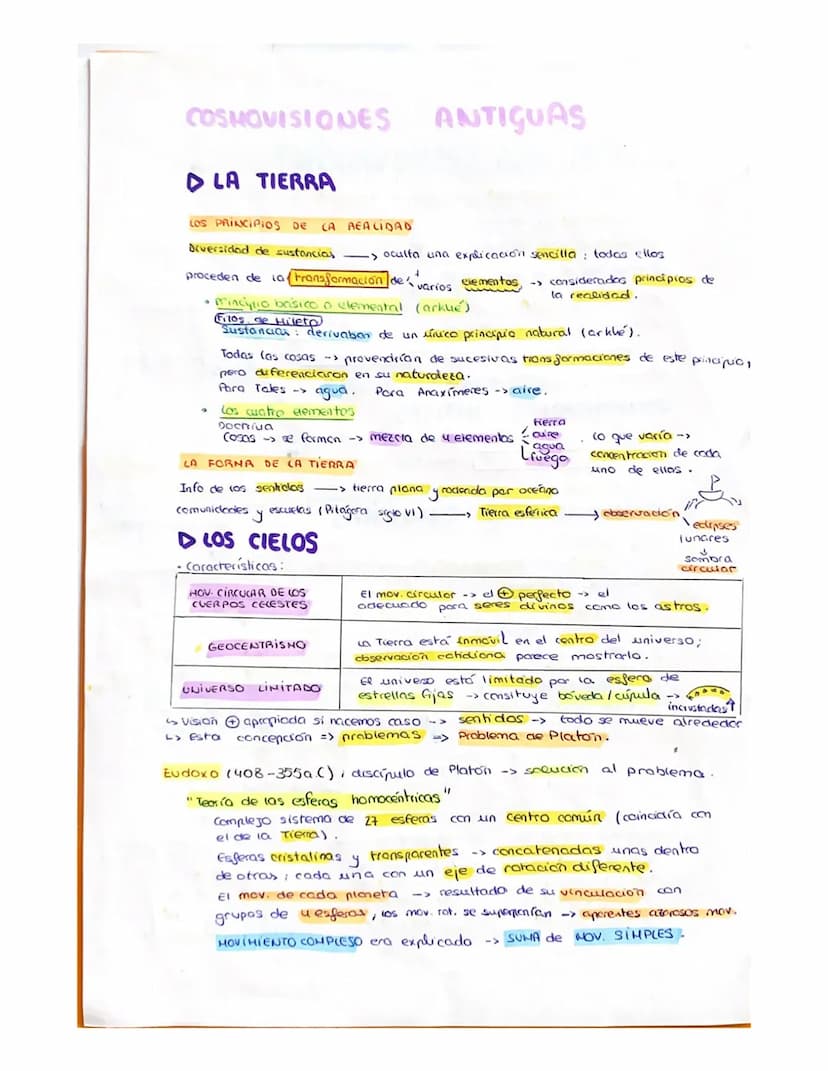 COSMOVISIONES ANTIGUAS
▷ LA TIERRA
LOS PRINCIPIOS DE LA REALIDAD
Diversidad de sustancias —> oculta una explicación sencilla ; todas ellos
proceden de la transformación de varios elementos --> considerados principios de
la realidad.
• Principio básico o elemental (arkhé)
Filos. de Mileto
Sustancias : derivaban de un único principio natural (arkhé).
Todas las cosas --> provendrían de sucesivas transformaciones de este principio,
pero diferenciaron en su naturaleza.
Para Tales --> agua. Para Anaxímenes --> aire.
• Los cuatro elementos
Doctrina
Cosas --> se forman --> mezcla de 4 elementos
tierra
aire
agua
fuego
lo que varía -->
concentracion de cada
uno de ellos.
LA FORMA DE LA TIERRA
Info de los sentidos —> tierra plana y rodeada por océano
comunidades y escuelas (Pitágora siglo VI) —> Tierra esférica —> observación
eclipses
lunares
sombra
circular
▷ LOS CIELOS
• Características :
MOV. CIRCULAR DE LOS
CUERPOS CELESTES
El mov. circular --> el ⊕ perfecto --> el
adecuado para seres divinos como los astros.
GEOCENTRISMO
La Tierra está inmóvil en el centro del universo;
observación cotidiana parece mostrarlo.
UNIVERSO LIMITADO
El universo está limitado por la esfera de
estrellas fijas --> consituye bóveda/cúpula -->
incrustadas
↳ Visión ⊕ apropiada si hacemos caso --> sentidos --> todo se mueve alrededor
↳ Esta concepción => problemas => Problema de Platón.
Eudoxo (408-355a.C), discípulo de Platón --> solución al problema.
"Teoría de las esferas homocéntricas"
Complejo sistema de 27 esferas con un centro común (coincidía con
el de la Tierra).
Esferas cristalinas y transparentes --> concatenadas unas dentro
de otras ; cada una con un eje de rotación diferente.
El mov. de cada planeta --> resultado de su vinculación con
grupos de 4 esferas, los mov. rot. se superponían --> aparentes mov.
MOVIMIENTO COMPLESO era explicado --> SUMA de MOV. SIMPLES.